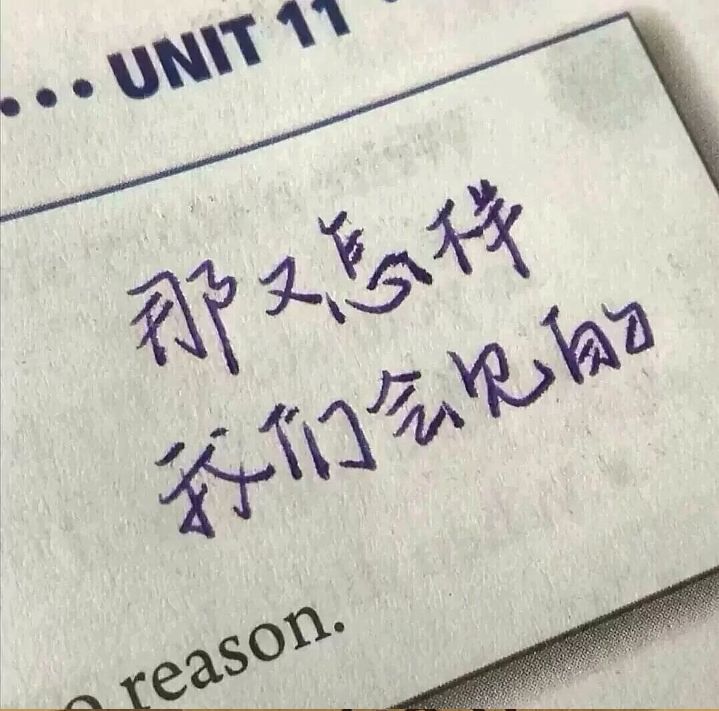 ••• UNIT 11
那又怎样
我们会见的
reason.